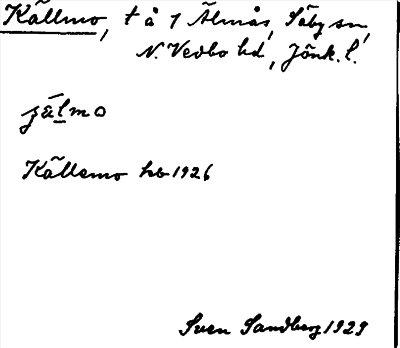 Källmo, t å 1 Älmås, Säby sn,
N. Vedbo hd, Jönk. l.
Källemo hb 1926
Sven Sandberg 1929